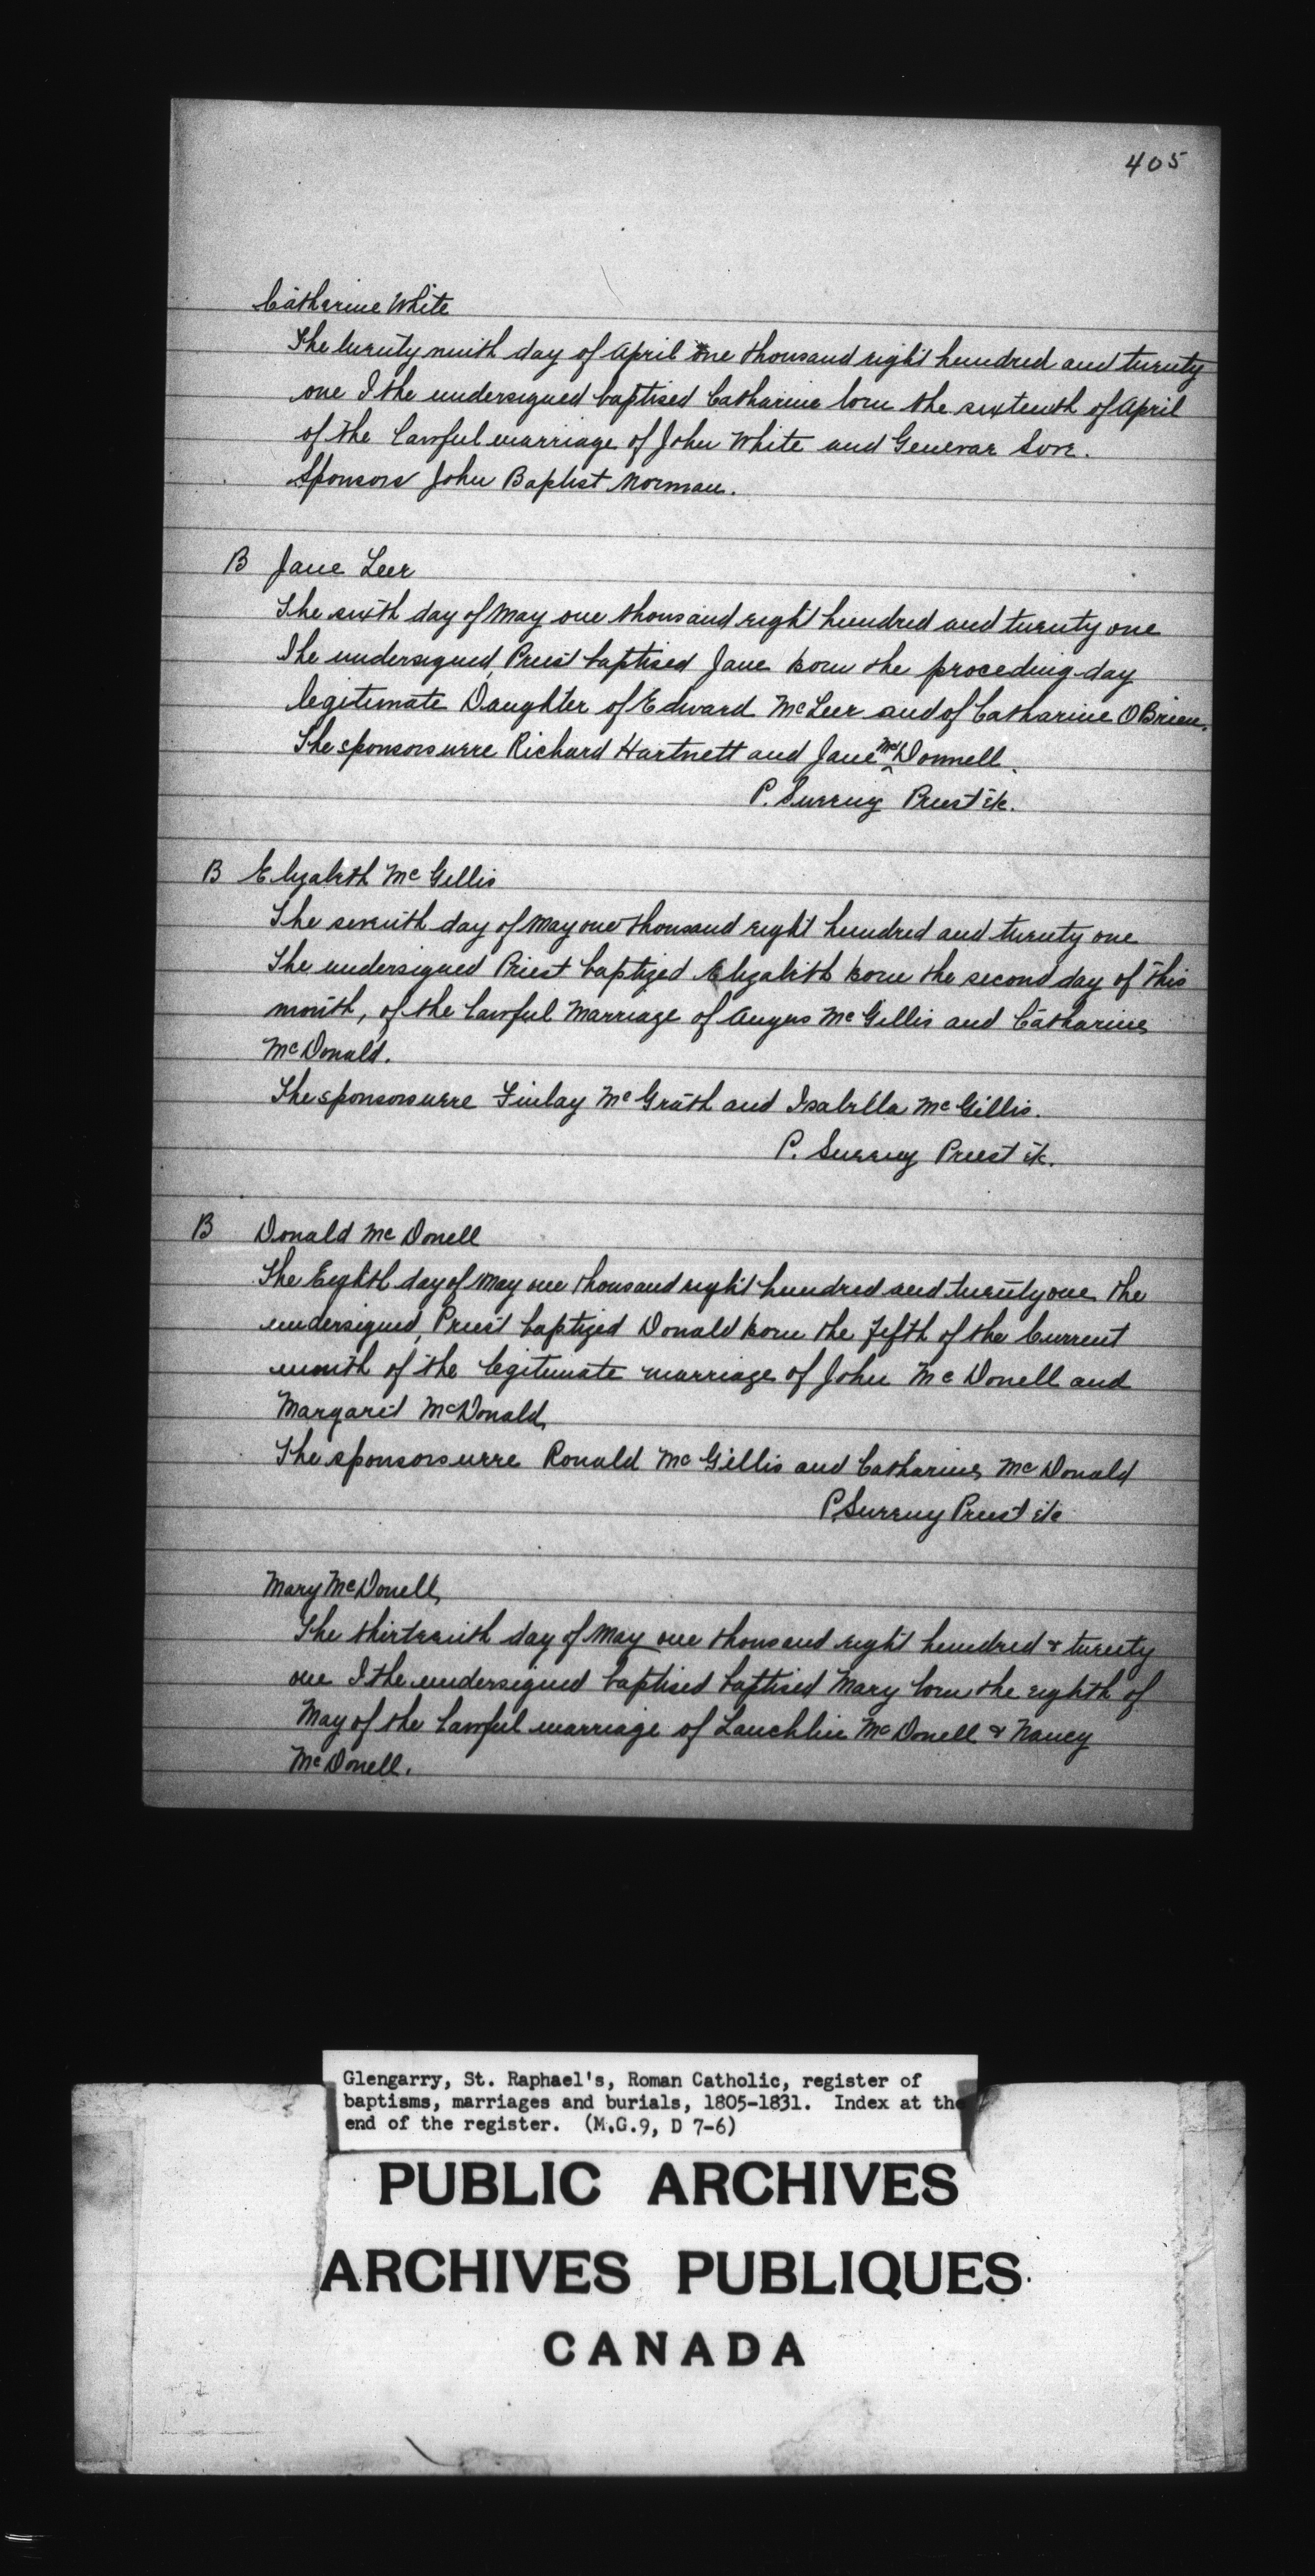 405
Catherine White
The twenty ninth day of April one thousand eight hundred and twenty
one I the undersigned baptised Catharine born the sixteenth of April
of the lawful marriage of John White and Genevar
Sponsors John Baptist Norman.
B Jane Leer
The sixth day of May one thousand eight hundred and twenty one
The undersigned, Priest baptised Jane born the proceding day
legitimate Daughter of Edward McLeer and of Catharine OBrien.
The sponsors were Richard Hartnett and Jane McDonnell.
P. Sweeny Priest &c.
B Elizabeth McGillis
The seventh day of May one thousand eight hundred and twenty one
The undersigned Priest baptized Elizabeth born the second day of this
month, of the lawful Marriage of Angus McGillis and Catharine
McDonald.
The sponsors were Finlay McGrath and Isabella McGillis.
P. Sweeny Priest &c.
B Donald McDonell
The Eighth day of May one thousand eight hundred and twenty one the
undersigned, Priest baptized Donald born the fifth of the Current
month of the legitimate marriage of John McDonell and
Margaret McDonald
The sponsors were Ronald McGillis and Catharine McDonald
P. Sweeny Priest &c
Mary McDonell
The thirteenth day of May one thousand eight hundred & twenty
one I the undersigned baptised baptised Mary born the eighth of
May of the lawful marriage of Lauchlin McDonell & Nancy
McDonell.
Glengarry, St. Raphael's, Roman Catholic, register of
baptisms, marriages and burials, 1805-1831. Index at the
end of the register. (M.G.9, D 7-6)
PUBLIC ARCHIVES
ARCHIVES PUBLIQUES
CANADA